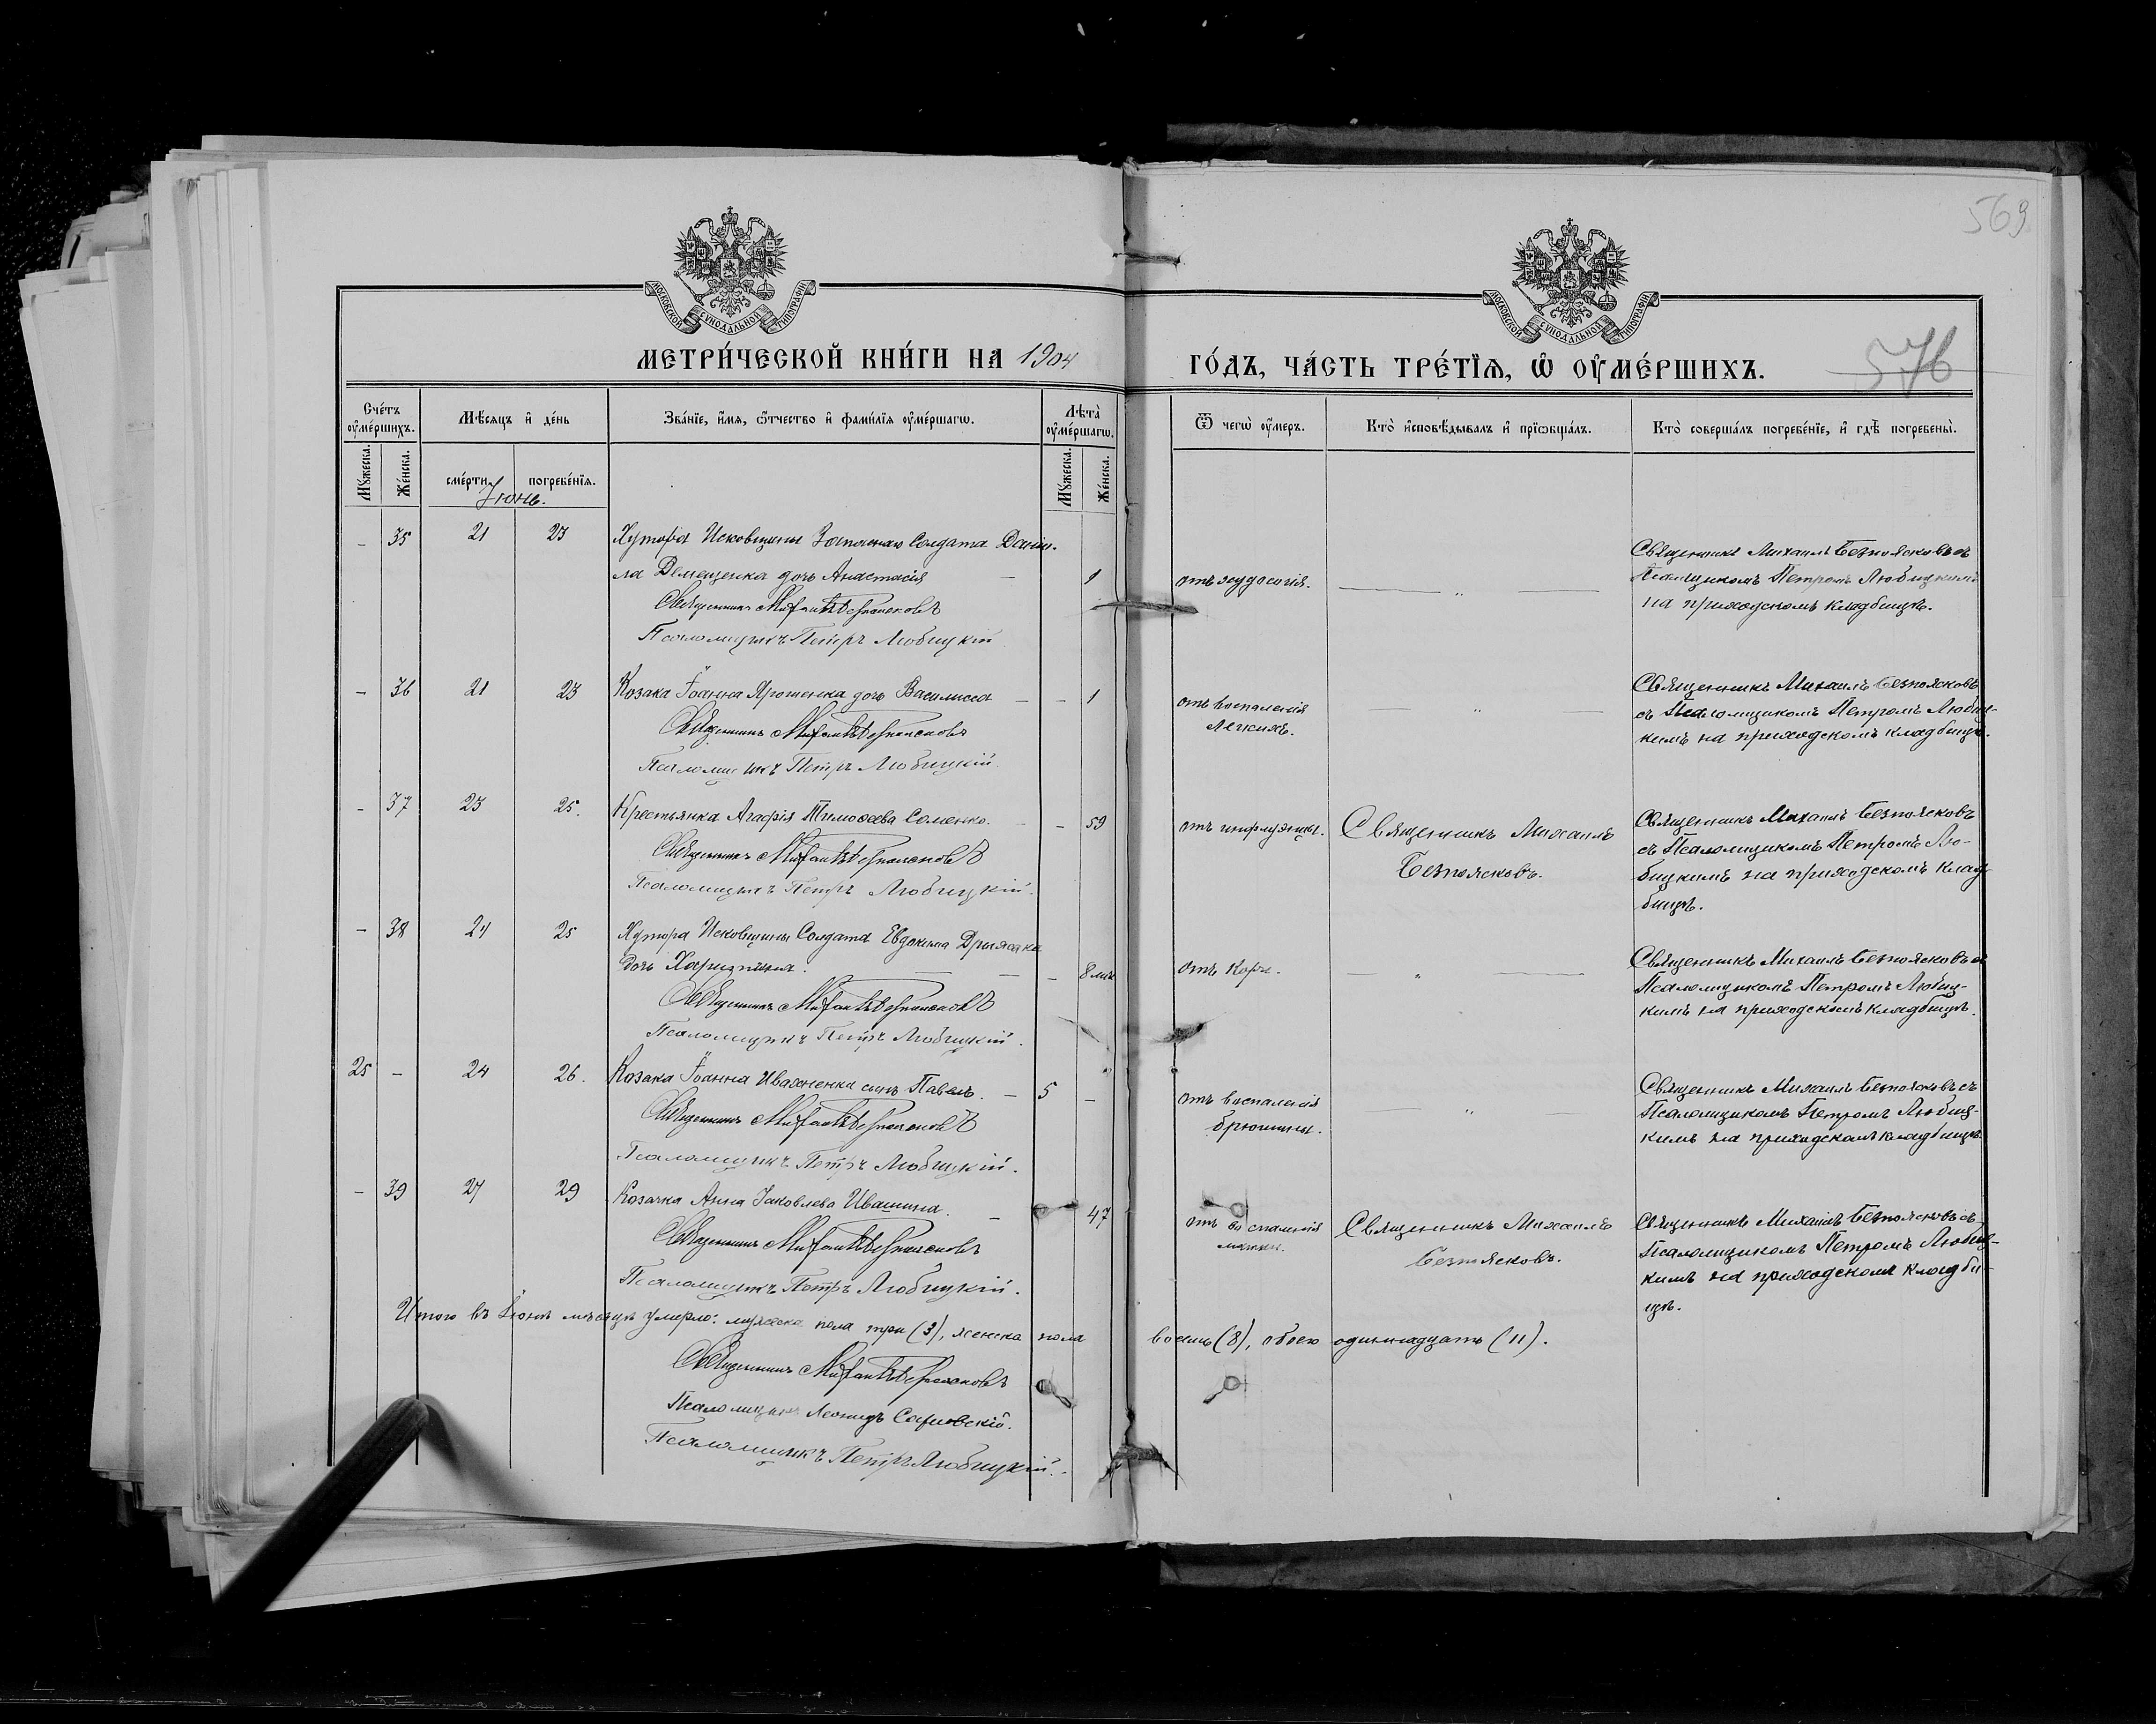 569
МОСКОВСКОЙ СѴНОДАЛЬНОЙ ТИПОГРАФІИ
МОСКОВСКОЙ СѴНОДАЛЬНОЙ ТИПОГРАФІИ
МЕТРИ́ЧЕСКОЙ КНИ́ГИ НА 1904
ГО́ДЪ, ЧА́СТЬ ТРЕ́ТЇѦ, Ѡ҆ ОУ҆МЕ́РШИХЪ.
576
Сче́тъ оу҆ме́ршихъ.
Мѣ́сяцъ и҆ де́нь
Зва́нїе, и҆́мя, ѻ҆́тчество и҆ фами́лїя оу҆ме́ршагѡ.
Лѣ́та оу҆ме́ршагѡ.
Ѿ чегѡ̀ оу҆́меръ.
Кто̀ и҆сповѣ́дывалъ и҆ прїѡбща́лъ.
Кто̀ соверша́лъ погребе́нїе, и҆ гдѣ̀ погребены̀.
Му́жеска.
Же́нска.
сме́рти.
погребе́нїя.
Му́жеска.
Же́нска.
Іюнь.
- 35 21 23 Хутора Исковщины Запаснаго Солдата Дани-
ла Демещенка дочь Анастасія — 1
Священникъ Михаилъ Безпоясковъ
Псаломщикъ Петръ Любицкій
отъ худосочія.
— „ —
Священникъ Михаилъ Безпоясковъ съ
Псаломщикомъ Петромъ Любицкимъ
на приходскомъ кладбищѣ.
- 36 21 23 Козака Іоанна Ярошенка дочь Василисса — - 1
Священникъ Михаилъ Безпоясковъ
Псаломщикъ Петръ Любицкій.
отъ воспаленія
легкихъ.
— „ —
Священникъ Михаилъ Безпоясковъ
съ Псаломщикомъ Петромъ Любиц-
кимъ на приходскомъ кладбищѣ.
- 37 23 25. Крестьянка Агафія Тимоѳеева Соменко. — - 59
Священникъ Михаилъ Безпоясковъ
Псаломщикъ Петръ Любицкій.
отъ инфлуэнцы.
Священникъ Михаилъ
Безпоясковъ.
Священникъ Михаилъ Безпоясковъ
съ Псаломщикомъ Петромъ Лю-
бицкимъ на приходскомъ клад-
бищѣ.
- 38 24 25 Хутора Исковщины Солдата Евдокима
дочь Харитина. — - 8 мѣс
Священникъ Михаилъ Безпоясковъ
Псаломщикъ Петръ Любицкій.
отъ кори.
— „ —
Священникъ Михаилъ Безпоясковъ съ
Псаломщикомъ Петромъ Любиц-
кимъ на приходскомъ кладбищѣ.
25 - 24 26. Козака Іоанна Ивахненка сынъ Павелъ. — 5 -
Священникъ Михаилъ Безпоясковъ
Псаломщикъ Петръ Любицкій.
отъ воспаленія
брюшины.
— „ —
Священникъ Михаилъ Безпоясковъ съ
Псаломщикомъ Петромъ Любиц-
кимъ на приходскомъ кладбищѣ.
- 39 27 29 Козачка Анна Іаковлева Ивашина. — 47
Священникъ Михаилъ Безпоясковъ
Псаломщикъ Петръ Любицкій.
отъ воспаленія
матки.
Священникъ Михаилъ
Безпоясковъ.
Священникъ Михаилъ Безпоясковъ съ
Псаломщикомъ Петромъ Любиц-
кимъ на приходскомъ кладби-
щѣ.
Итого въ Іюнѣ мѣсяцѣ умерло: мужеска пола три (3), женска пола восемь (8), обоего одиннадцать (11).
Священникъ Михаилъ Безпоясковъ
Псаломщикъ Леонидъ
Псаломщикъ Петръ Любицкій.